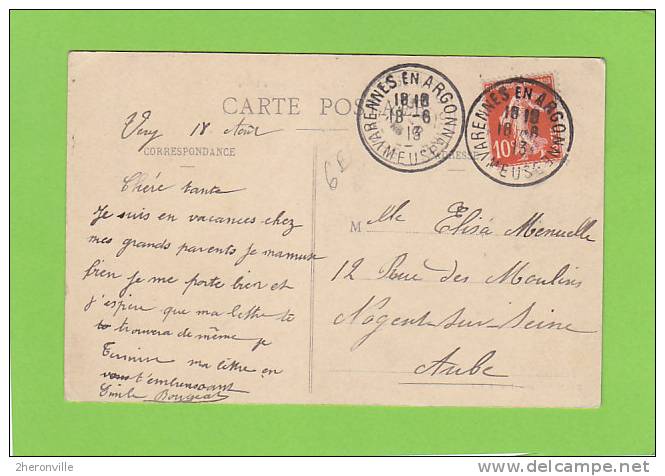 CARTE POSTALE
VARENNES EN ARGONNE
18 18
18 - 6
13
MEUSE
VARENNES EN ARGONNE
18 18
18 - 6
13
MEUSE
10c
Very 18 Août
CORRESPONDANCE
ADRESSE
6E
Chère tante
Je suis en vacances chez
mes grands parents je mamuse
bien je me porte bien et
j'espère que ma lettre te
te trouvera de même je
Termine ma lettre en
vous t'embrassant
Emile
M lle Elisa Menuelle
12 Rue des Moulins
Nogent sur Seine
Aube
2heronville
www.delcampe.net